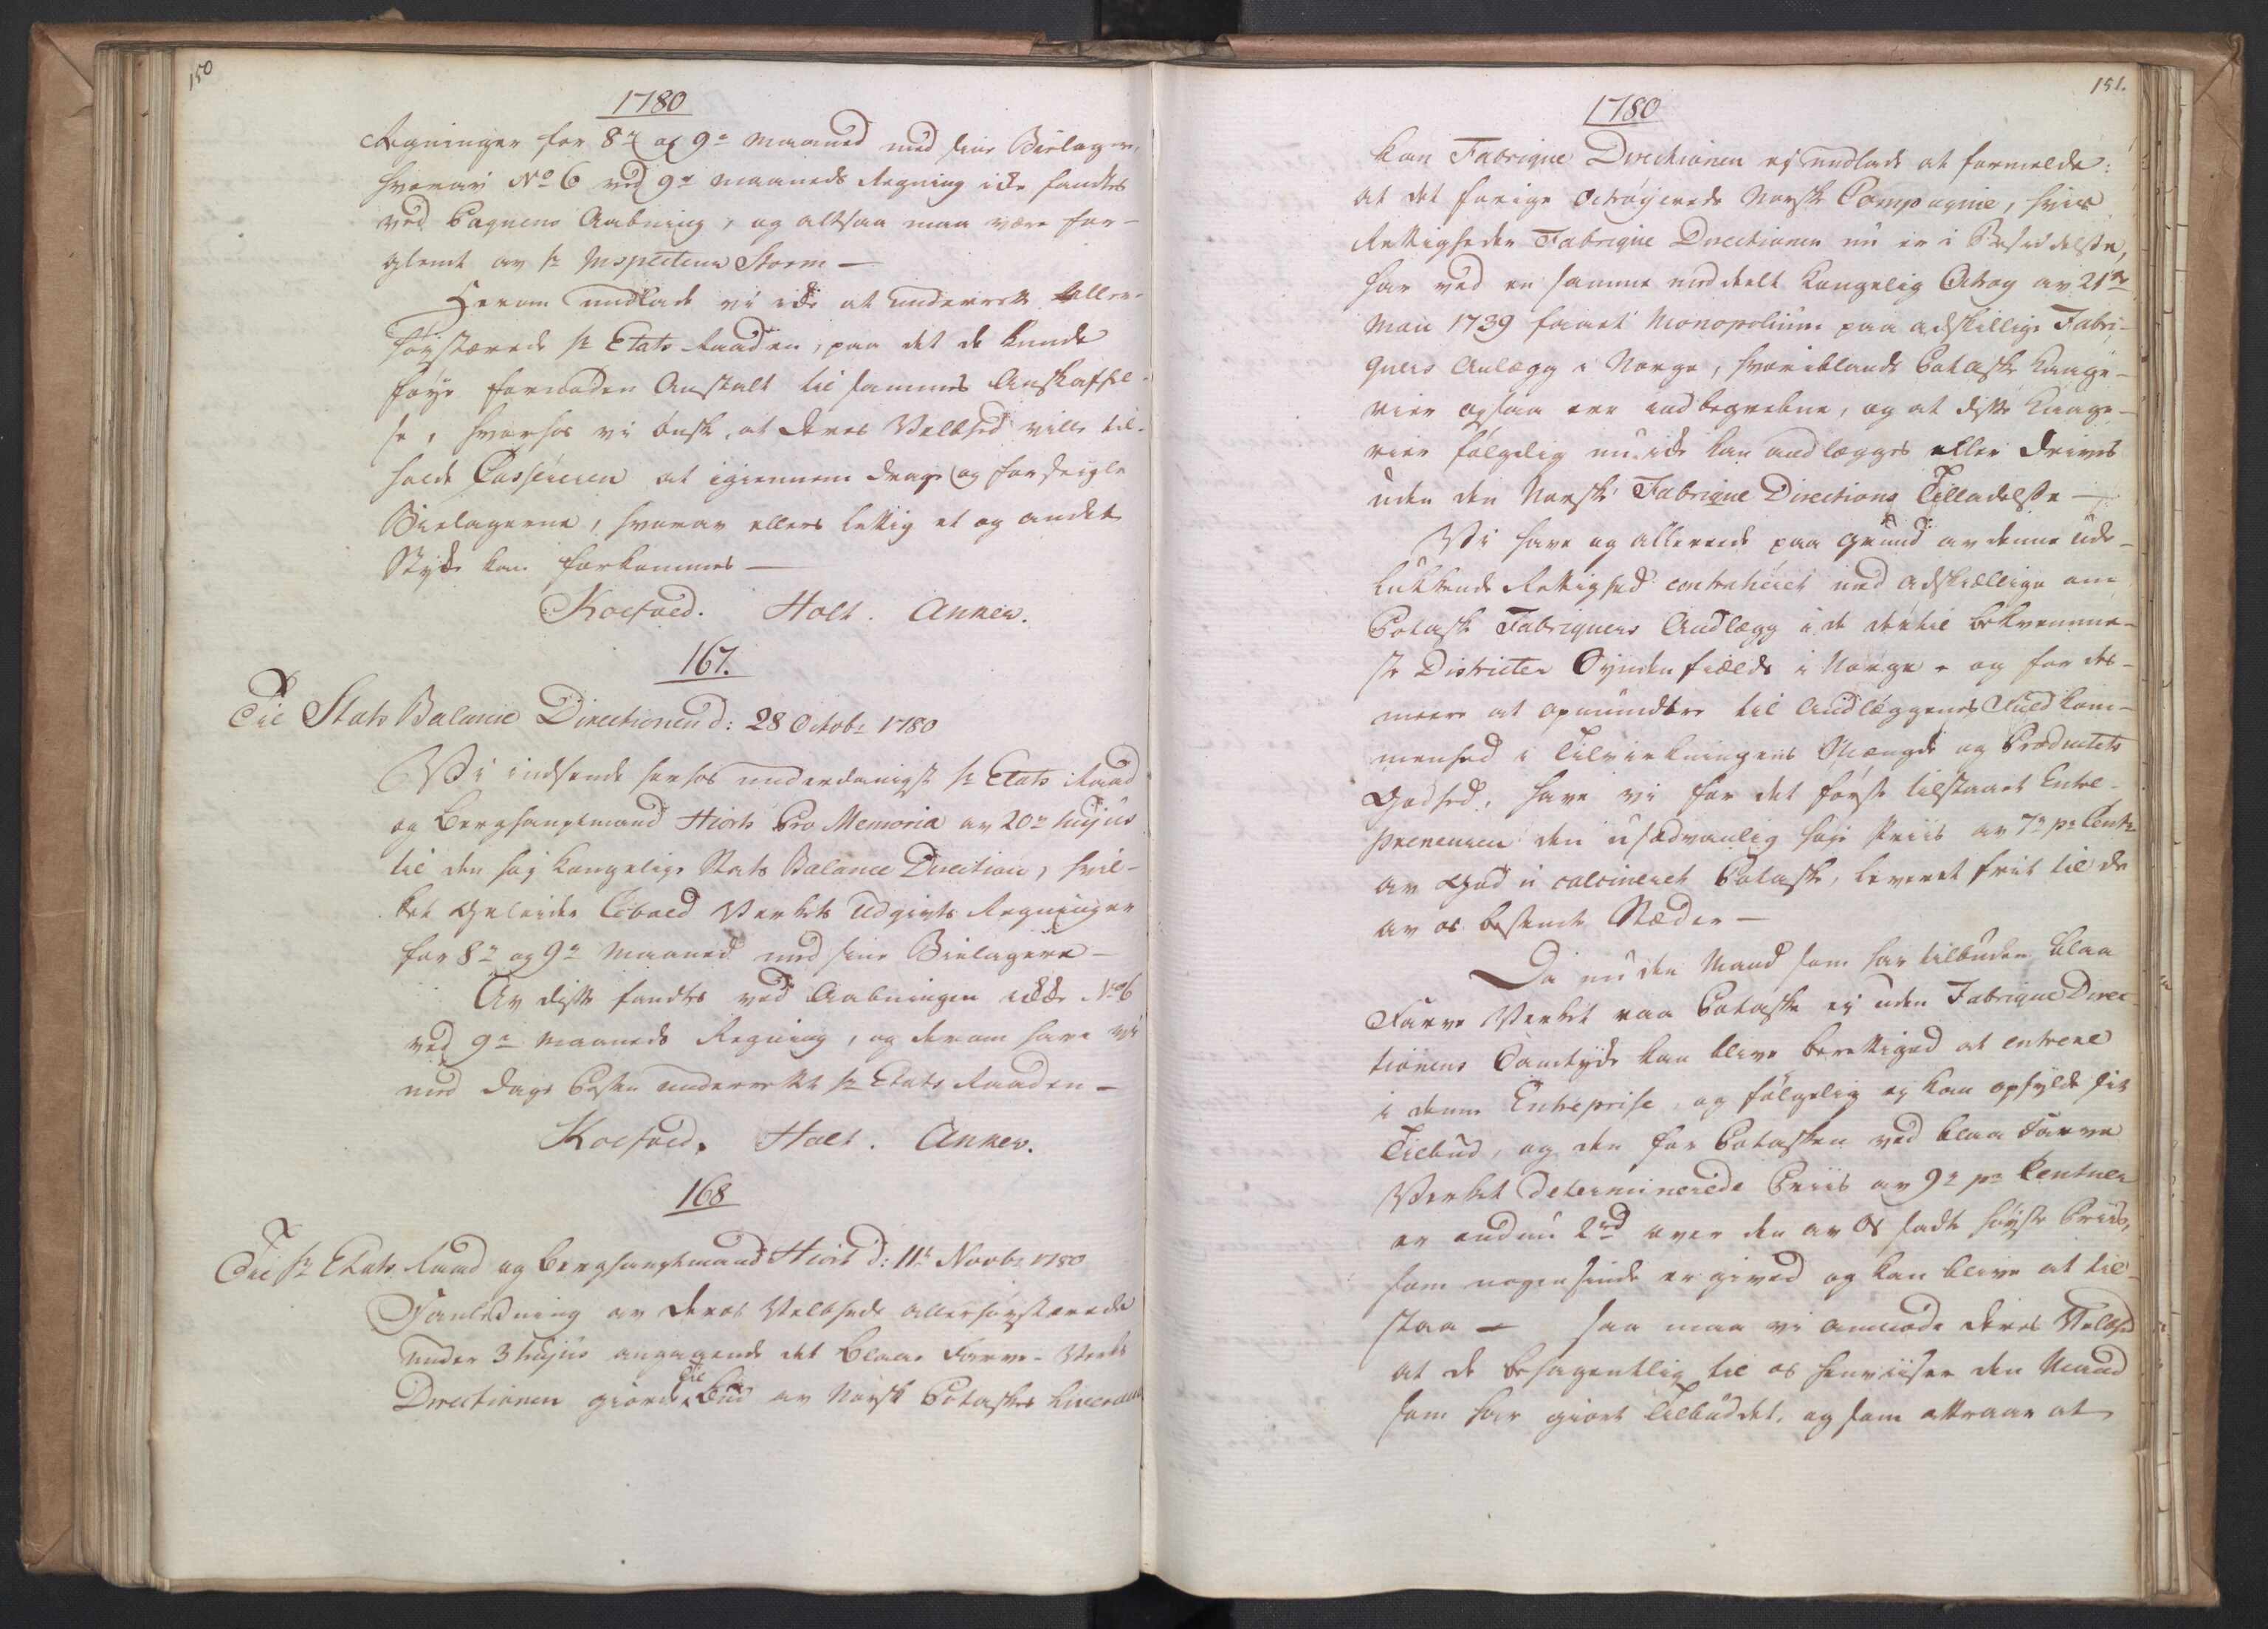 150
1780
Regninger for 8de og 9de Maaned med sine Bielager,
hvoraf No 6 ved 9de Maaneds Regning icke fandtes
ved Paqvens Aabning, og altsaa maa være for-
glemt av hr Inspecteur Storm —
Herom undlade vi icke at underrette Aller-
høystærede hr Etats Raaden, paa det de kunde
føye fornøden Anstalt til sammes Anskaffel-
se, hvorhos vi ønske, at Deres Velbhed ville til-
holde Casseuren at igiennem drage og forseigle
Bielagerne, hvorav ellers lettig et og andet
Stycke kan forkommes —
Koefoed. Holt. Anker.
167.
Til Stats Balance Directionen d: 28 Octobr 1780
Vi indsende herhos underdanigst hr Etats Raad
og Berghauptmand Hiorts Pro Memoria av 20de hujus
til den høy Kongelige Stats Balance Direction, hvil-
ket geleider Cobold Verkets Udgivts Regninger
for 8de og 9de Maaned med sine Bielagere —
Av disse fandtes ved Aabningen icke No 6
ved 9de Maaneds Regning, og derom have vi
med Dags Posten underrettet hr Etats Raaden —
Koefoed. Holt. Anker.
168
Til hr Etats Raad og Berghauptmand Hiort d: 11te Novbr 1780
I Anledning av Deres Velbheds allerhøystærede
under 3 hujus angaaende det Blaae Farve-Verks
Directionen giorde tilbud av Norsk Potaskes Liverance
151.
1780
kan Fabrique Directionen ej undlade at formelde:
at det forrige Octrøyerede Norske Compagnie, hvis
Rettigheder Fabrique Directionen nu er i Besiddelse,
har ved en samme meddeelt Kongelig Octroy av 21de
Maii 1739 faaet Monopolium paa adskillige Fabri-
quers Anlægg i Norge, hvoriblandt Potaske Kaage-
rier ogsaa ere indbegrebne, og at disse Kaage-
rier følgelig nu icke kan anlægges eller drives
uden den Norske Fabrique Directions Tilladelse —
Vi have og allereede paa Grund av denne ude-
lukkende Rettighed contraheret med adskællige om
Potaske Fabriquers Andlægg i de dertil beqvemme-
ste Districter Synden fields i Norge, og for des-
meere at opmundtre til Andlæggenes Fuldkom-
menhed i Tilvirkningens Mængde og Productets
Godhed, have vi for det første tilstaaet Entre-
preneuren den usædvanlig høje Priis av 7 rd pr Centr
av God u calcineret Potaske, leveret frit til de
av os bestemte Stæder —
Da nu den Mand som har tilbuden Blaa
Farve Verket raa Potaske ej uden Fabrique Direc-
tionens Samtycke kan blive berettiged at entrere
i denne Entreprise, og følgelig ej kan opfylde sit
Tilbud, og den for Potasken ved Blaa Farve
Verket determinerede Priis av 9 rd pr Centner
er endnu 2 rd over den av Os satte høyste Priis,
som nogensinde er given og kan blive at til-
staa — saa maa vi anmode Deres Velbhed
at de behagentlig til os henviiser den Mand
som har giort Tilbuddet, og som attraar at